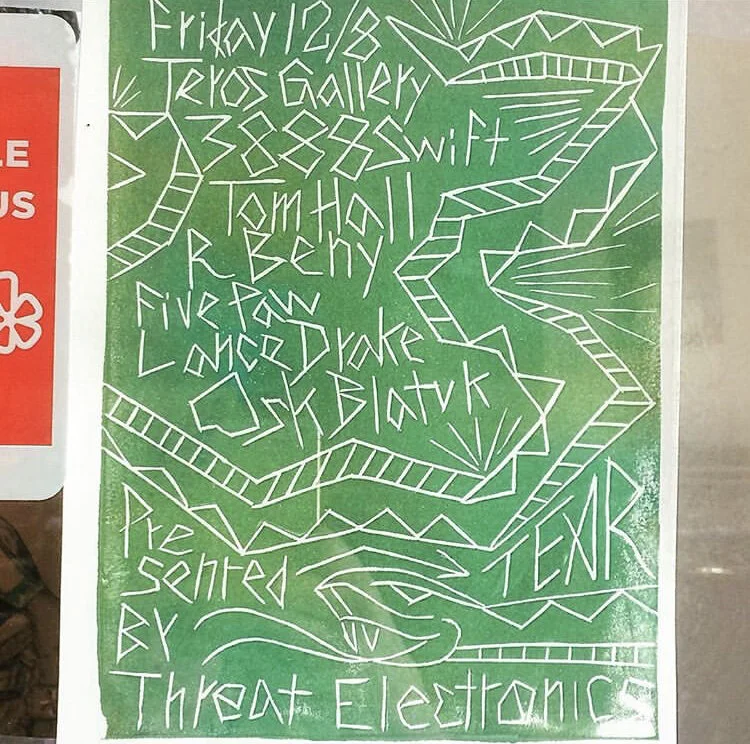 Friday 12/8
Teros Gallery
3888 Swift
Tom Hall
R Beny
Five Paw
Lance Drake
Blatvk
TEAR
Pre
sented
BY
Threat Electronics
LE
US